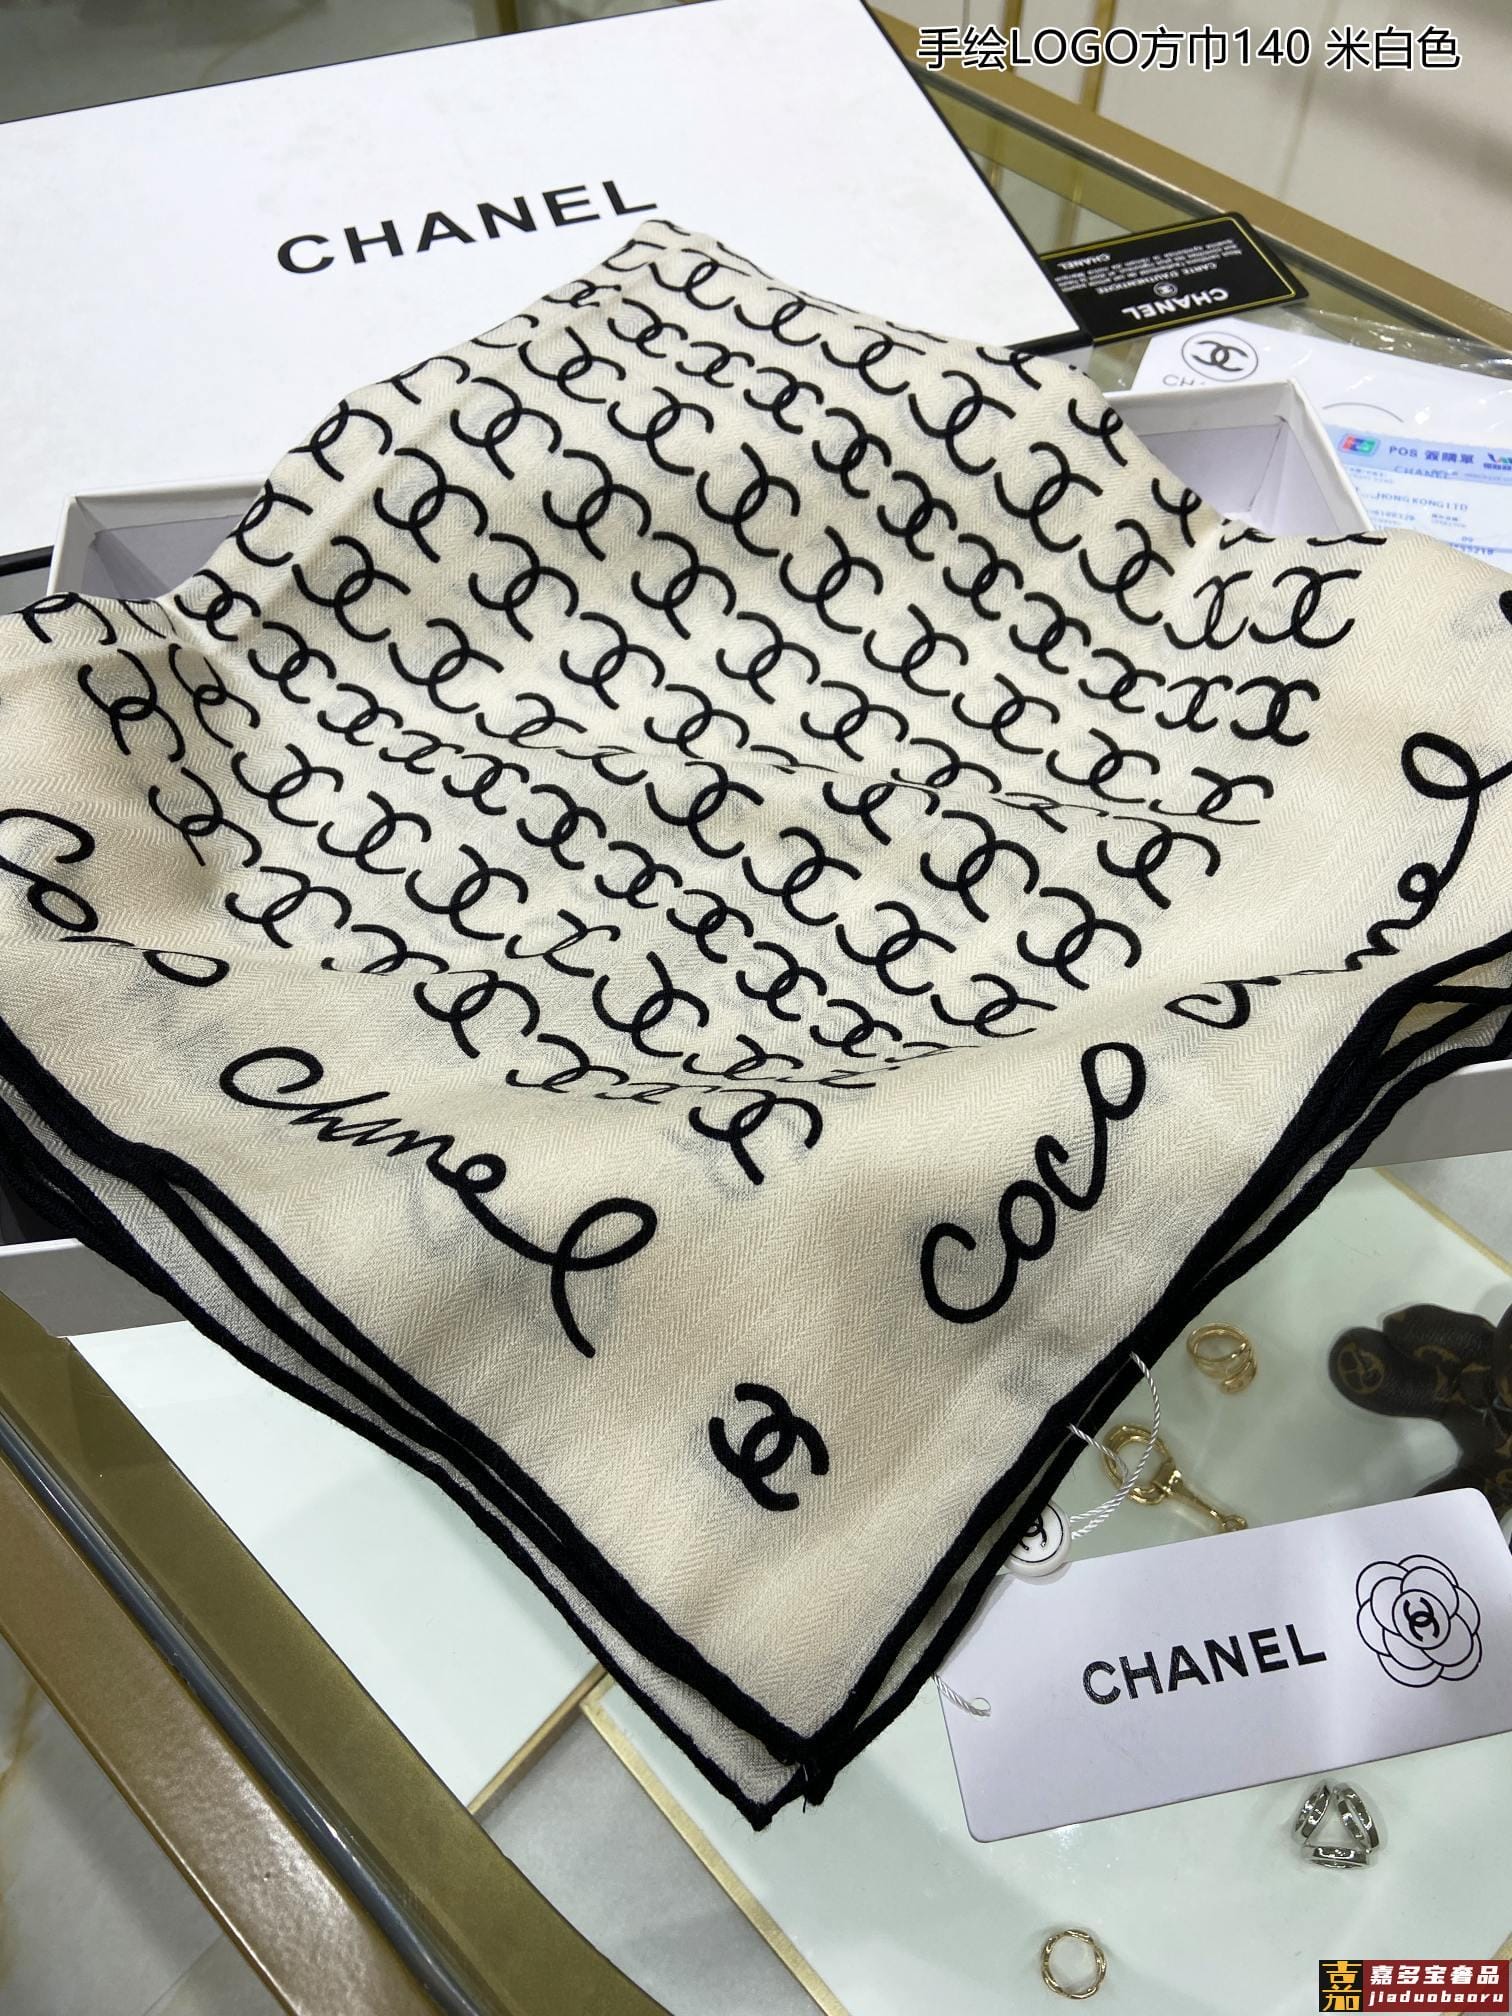 手绘LOGO方巾140 米白色
CHANEL
CHANEL
CARTE D'AUTHENTICITE
CHANEL
POS 簽購單
CHANEL
HONG KONG LTD
Coco
Chanel
Coco
Chanel
CHANEL
嘉多宝奢品
jiaduobaoru